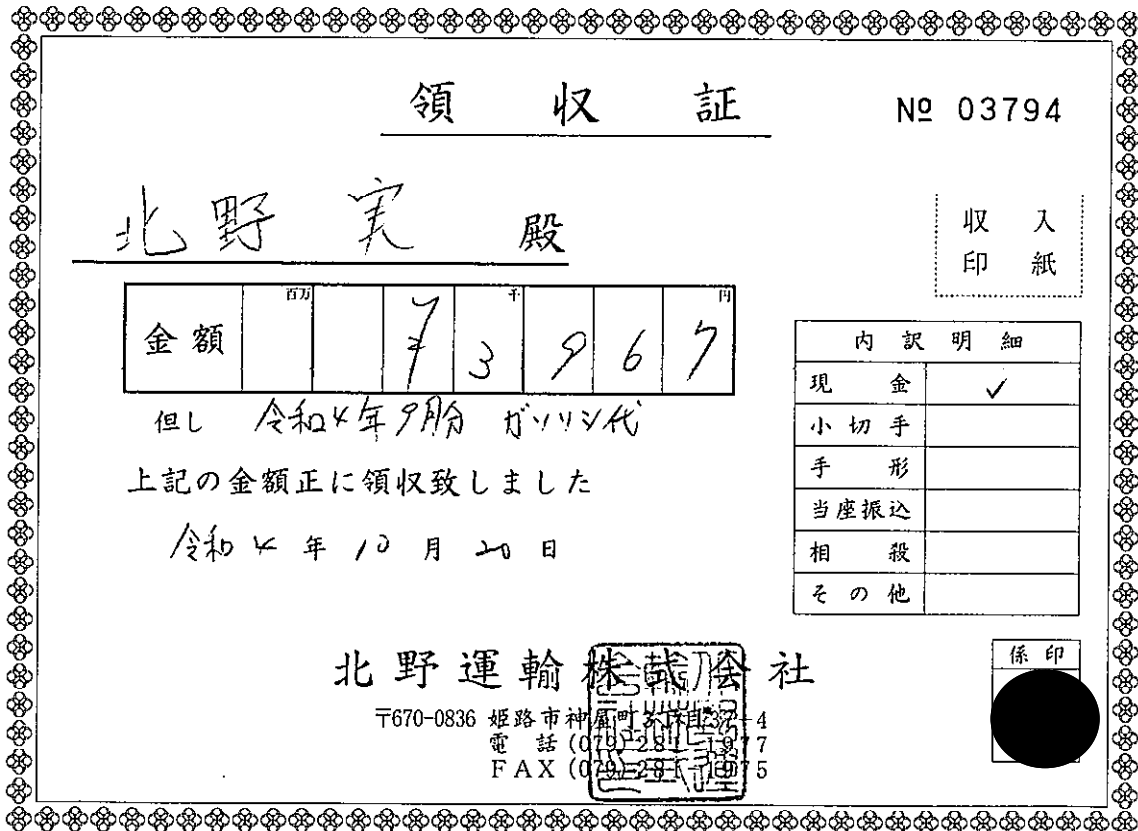 領収証
№ 03794
北野 実 殿
収入
印紙
金額 百万 千 円
¥3967
但し 令和4年9月分 ガソリン代
上記の金額正に領収致しました
令和4年10月20日
内訳明細
現金 ✓
小切手
手形
当座振込
相殺
その他
北野運輸株式会社
〒670-0836 姫路市神屋町3丁目37-4
電話 (079) 281-1977
FAX (079) 281-1975
係印